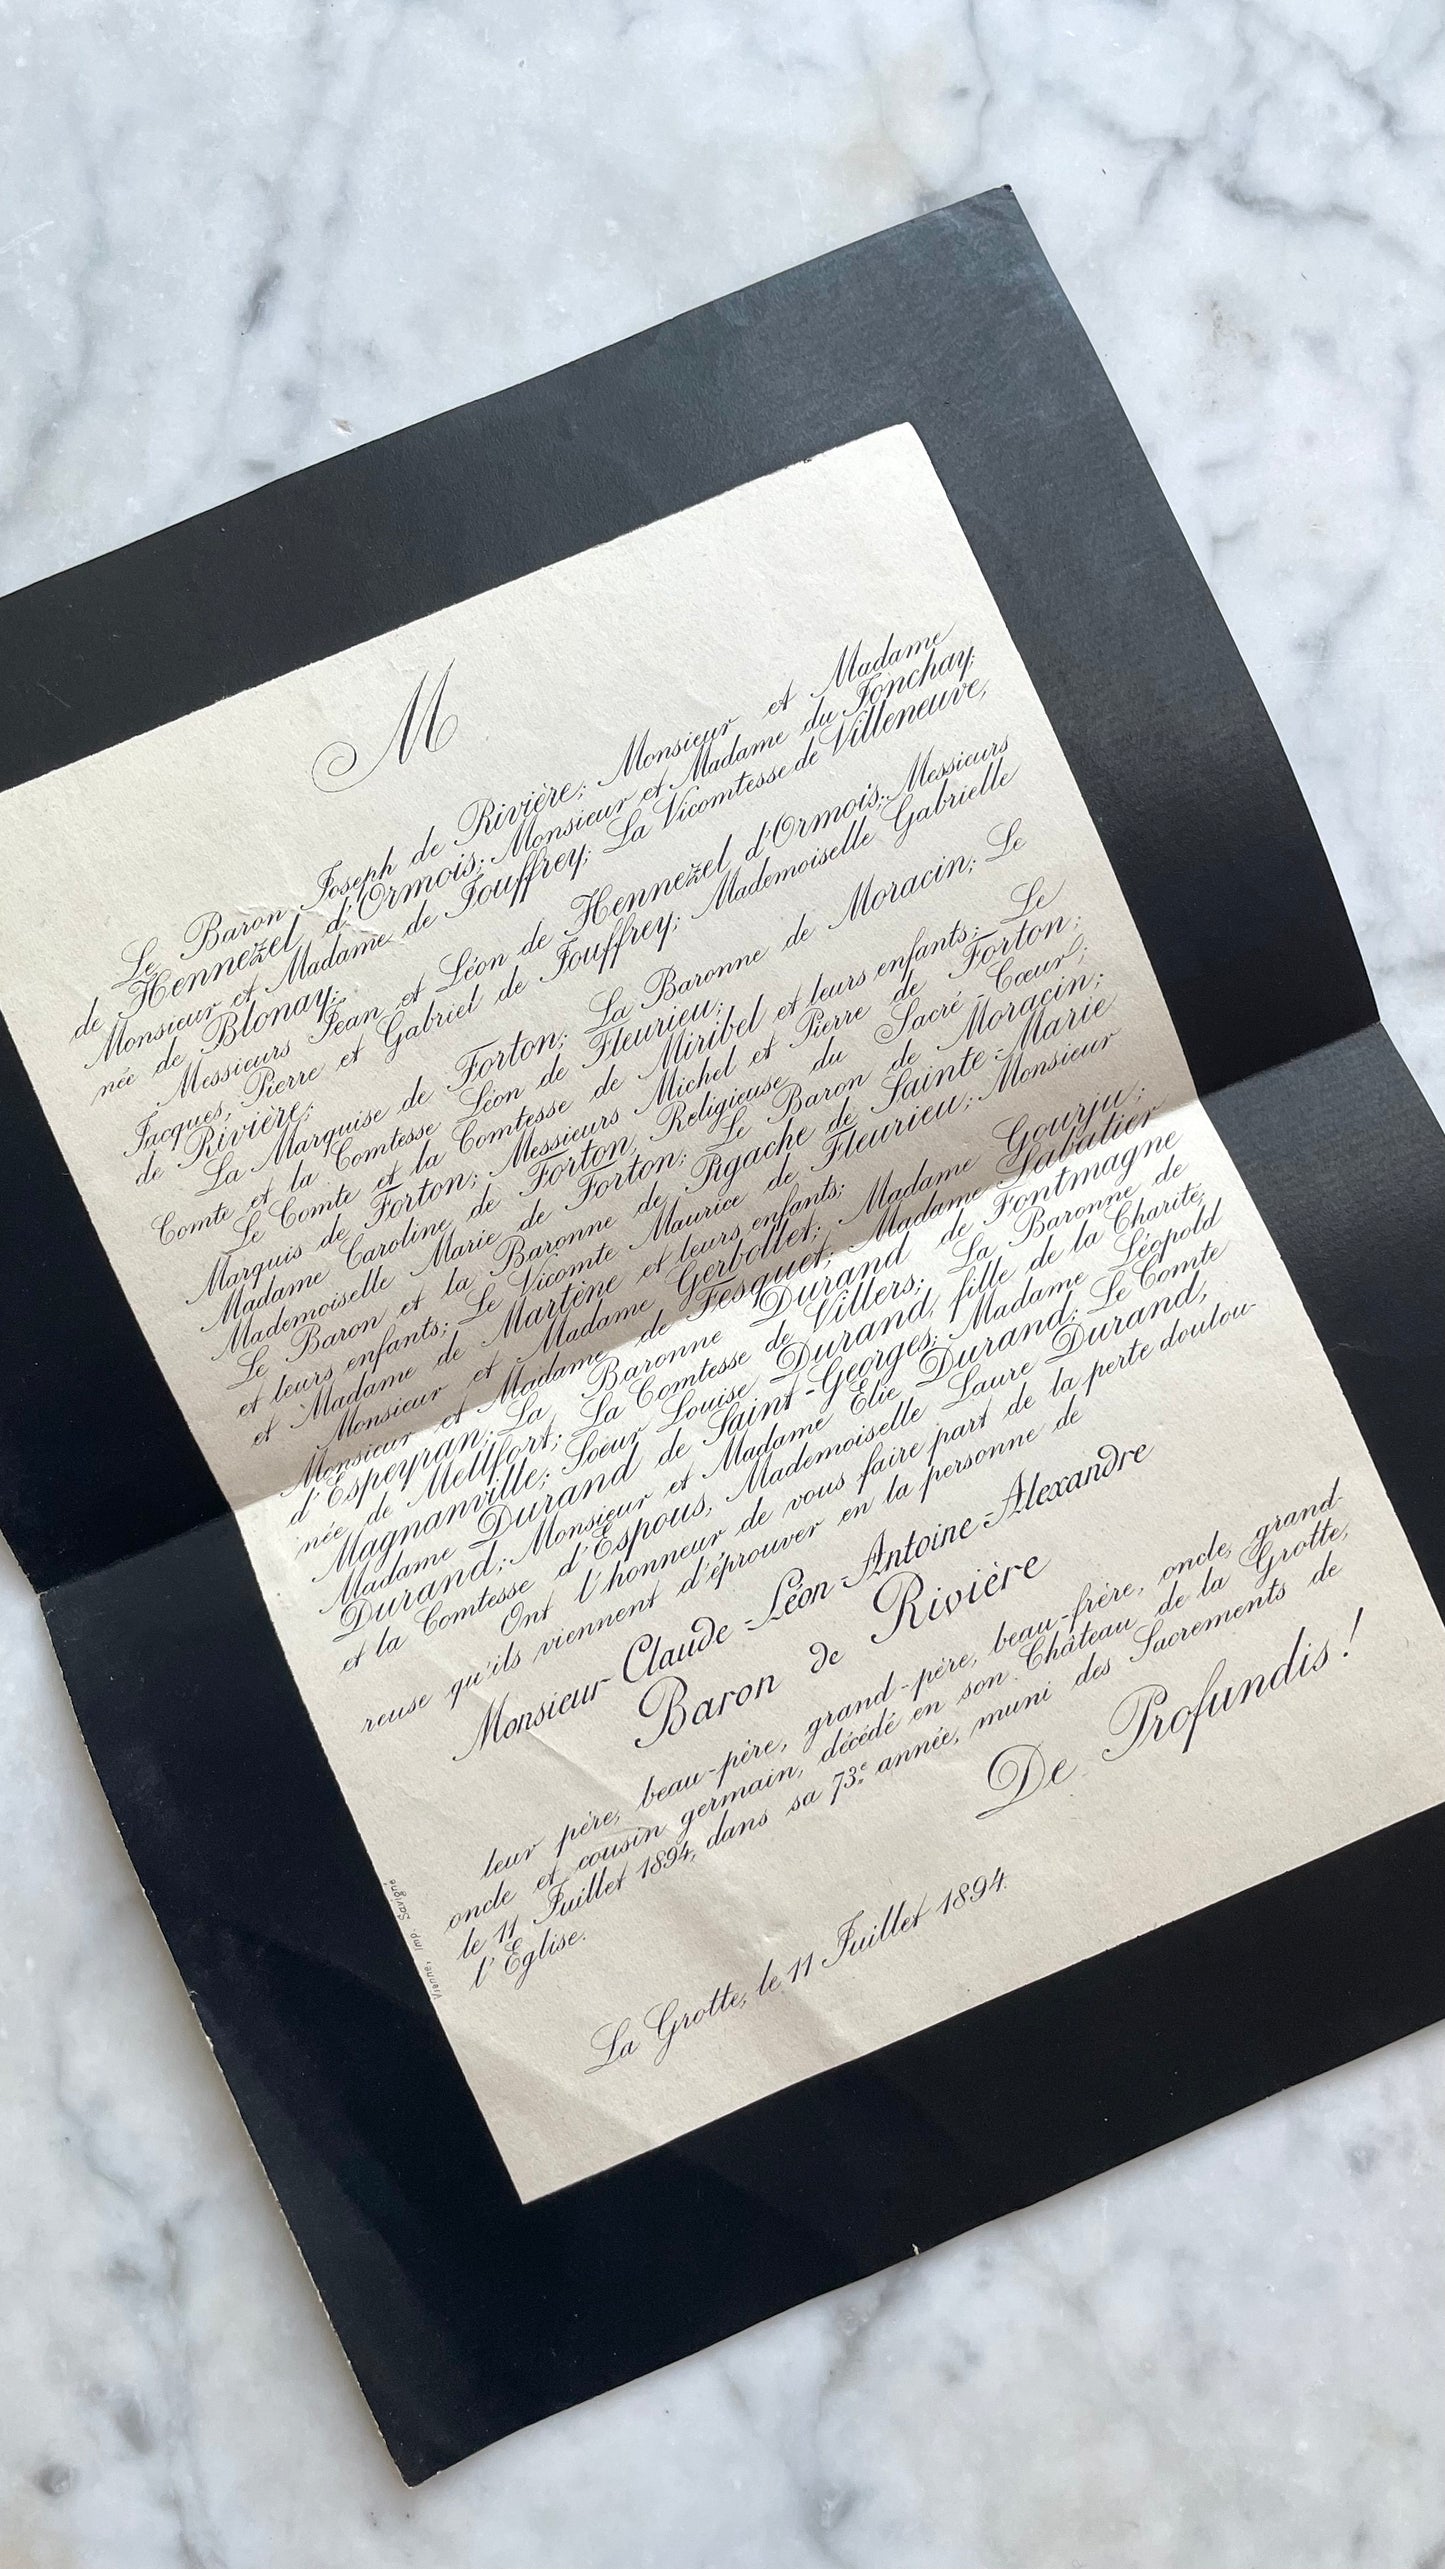 M
Le Baron Joseph de Rivière; Monsieur et Madame
de Hennezel d'Ormois; Monsieur et Madame du Jonchay;
Monsieur et Madame de Jouffrey; La Vicomtesse de Villeneuve,
née de Blonay;
Messieurs Jean et Léon de Hennezel d'Ormois; Messieurs
Jacques, Pierre et Gabriel de Jouffrey; Mademoiselle Gabrielle
de Rivière;
La Marquise de Forton; La Baronne de Moracin; Le
Comte et la Comtesse Léon de Fleurieu;
Le Comte et la Comtesse de Miribel et leurs enfants; Le
Marquis de Forton; Messieurs Michel et Pierre de Forton;
Madame Caroline de Forton, Religieuse du Sacré-Cœur;
Mademoiselle Marie de Forton; Le Baron de Moracin;
Le Baron et la Baronne de Rgache de Sainte-Marie
et leurs enfants; Le Vicomte Maurice de Fleurieu; Monsieur
et Madame de Martène et leurs enfants;
Monsieur et Madame Gerbollet; Madame Gourju;
Monsieur et Madame de Fesquet; Madame Sabatier
d'Espeyran; La Baronne Durand de Fontmagne
née de Mellfort; La Comtesse de Villers; La Baronne de
Magnanville; Soeur Louise Durand, fille de la Charité;
Madame Durand de Saint-Georges; Madame Léopold
Durand; Monsieur et Madame Elie Durand; Le Comte
et la Comtesse d'Espous, Mademoiselle Laure Durand,
Ont l'honneur de vous faire part de la perte doulou-
reuse qu'ils viennent d'éprouver en la personne de
Monsieur Claude-Léon-Antoine-Alexandre
Baron de Rivière
leur père, beau-père, grand-père, beau-frère, oncle, grand-
oncle et cousin germain, décédé en son Château de la Grotte,
le 11 Juillet 1894, dans sa 73e année, muni des Sacrements de
l'Eglise.
De Profundis!
La Grotte, le 11 Juillet 1894.
Vienne, Imp. Savigné